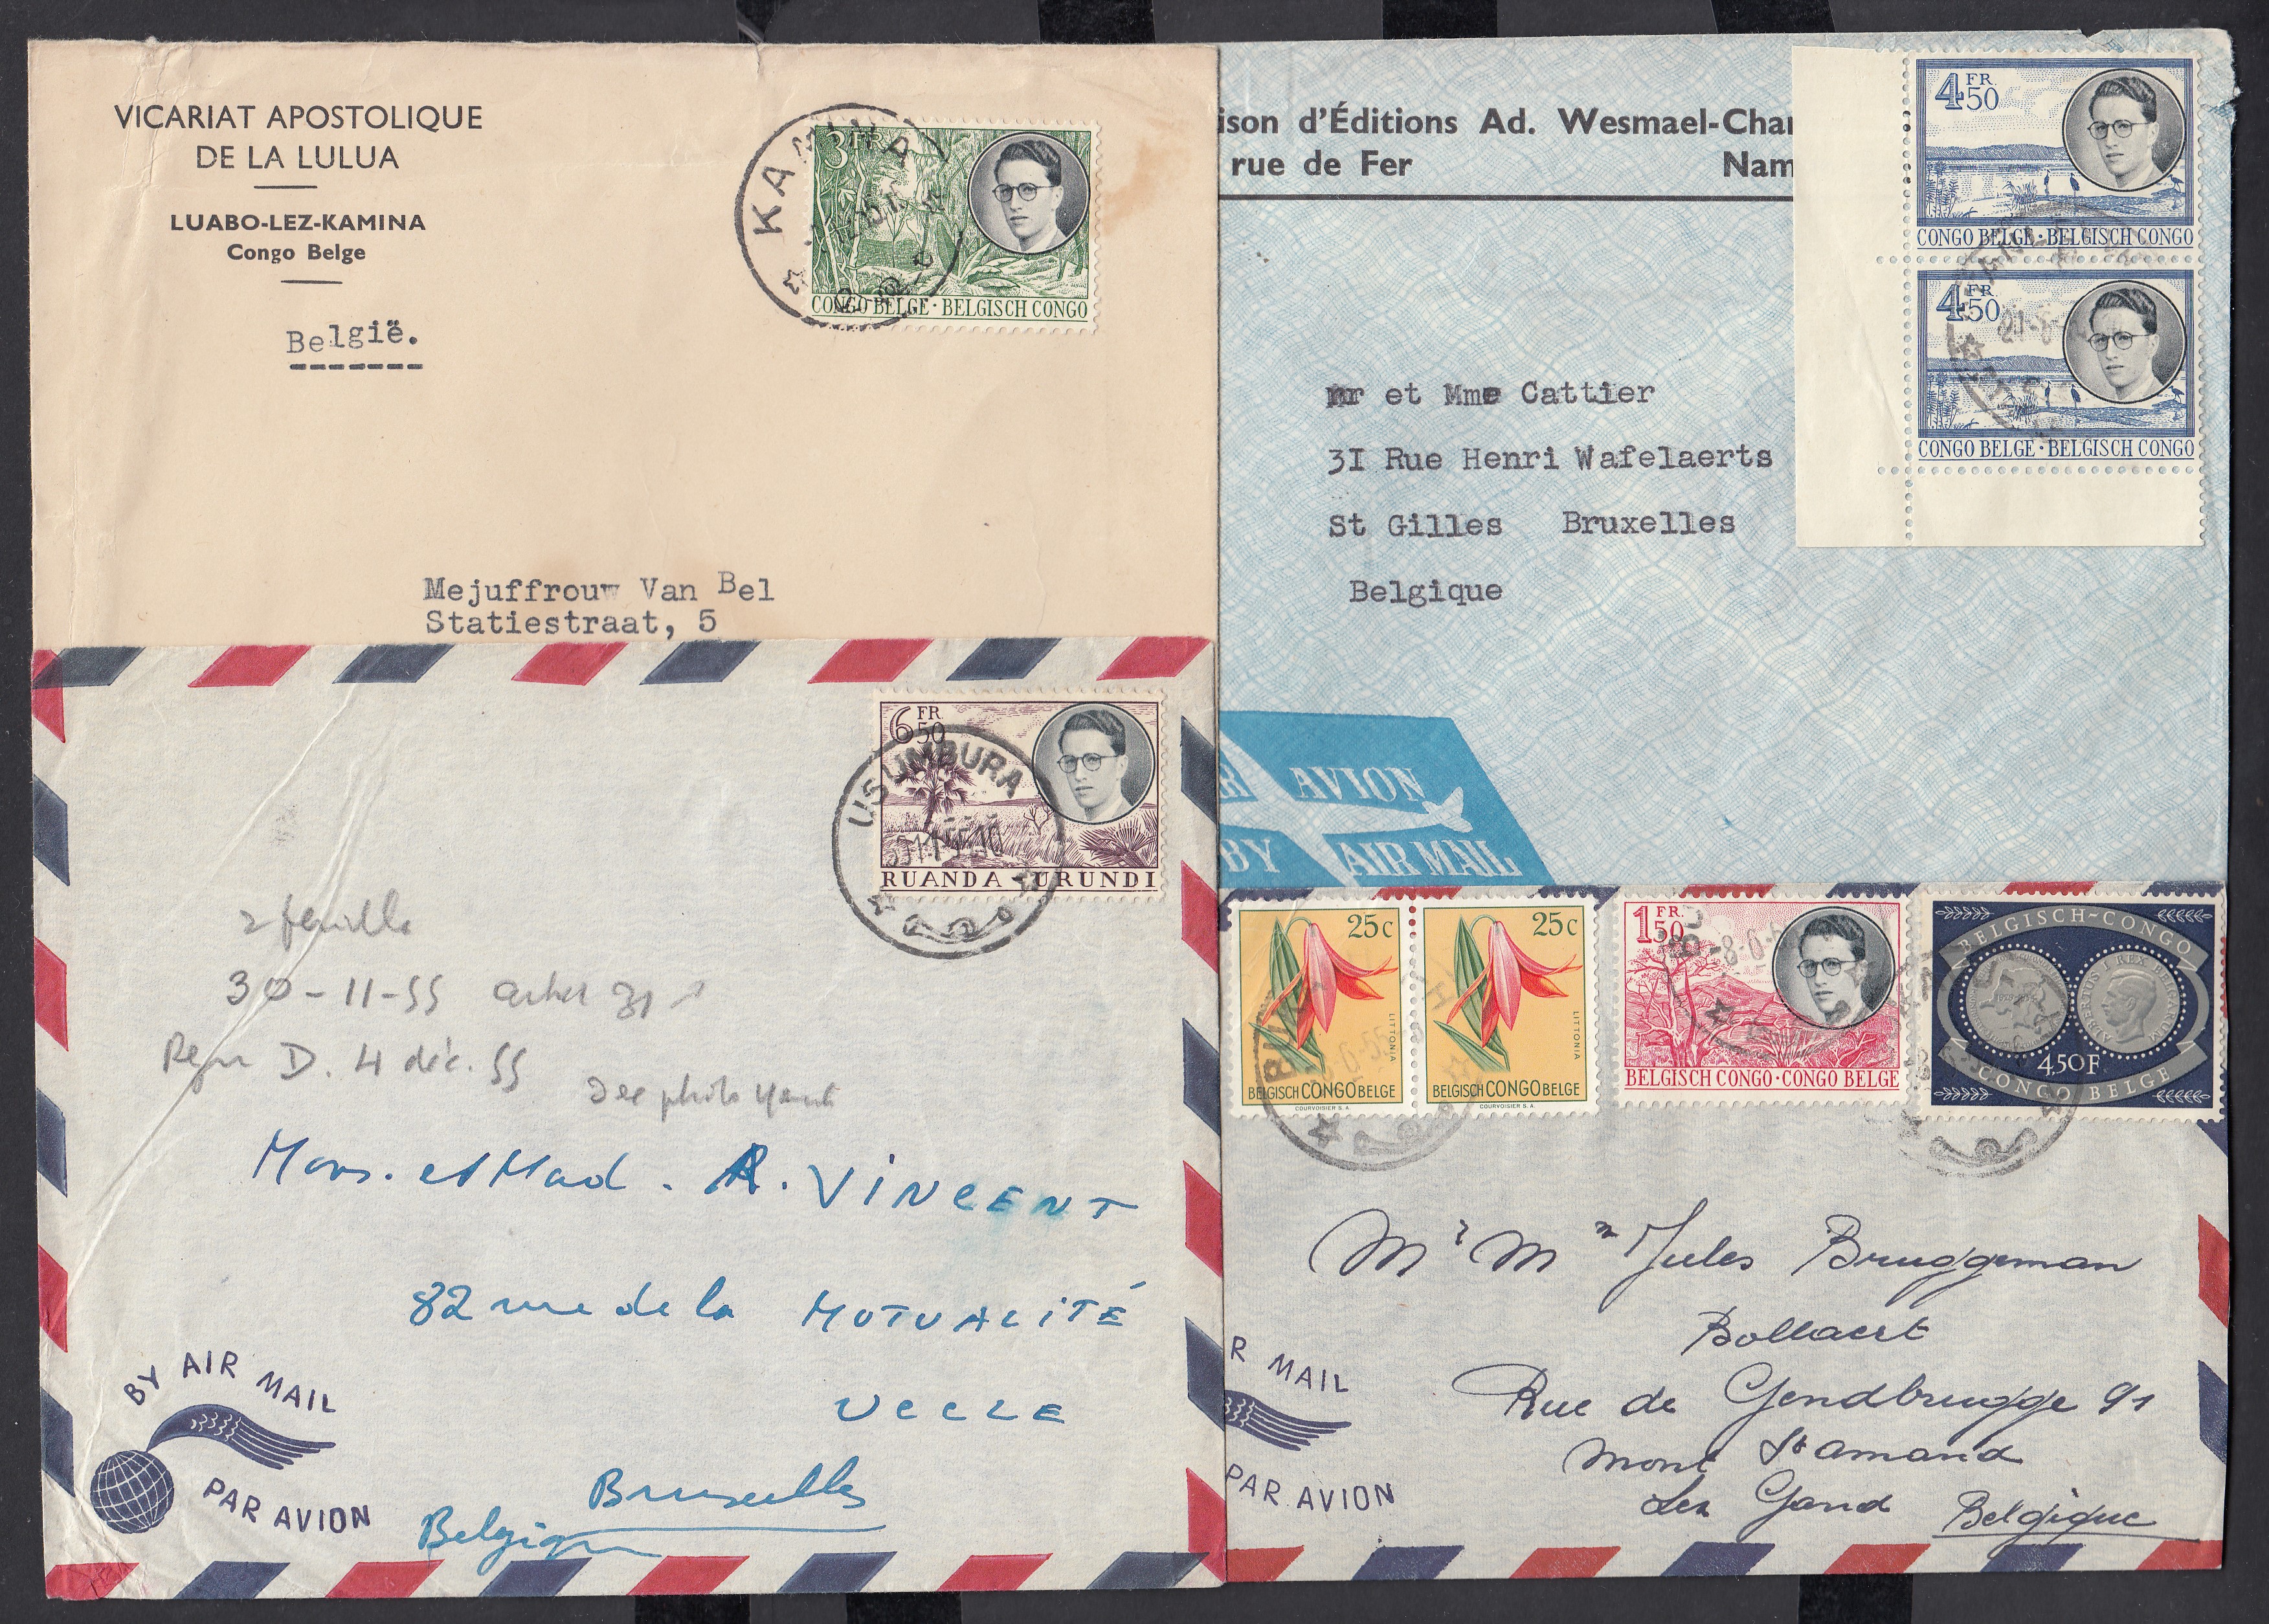 VICARIAT APOSTOLIQUE
DE LA LULUA
LUABO-LEZ-KAMINA
Congo Belge
België.
KAMINA
3FR
CONGO BELGE · BELGISCH CONGO
Mejuffrouw Van Bel
Statiestraat, 5
ison d'Éditions Ad. Wesmael-Char
rue de Fer Nam
4FR.50
CONGO BELGE · BELGISCH CONGO
4FR.50
CONGO BELGE · BELGISCH CONGO
mr et Mme Cattier
3I Rue Henri Wafelaerts
St Gilles Bruxelles
Belgique
AVION
BY AIR MAIL
6FR.50
USUMBURA
RUANDA URUNDI
2 feuille
30-11-55
D. 4 déc. 55
Mons. et Mad. A. VINCENT
82 rue de la MUTUALITÉ
UCCLE
Bruxelles
Belgique
BY AIR MAIL
PAR AVION
25c
LITTONIA
BELGISCH CONGO BELGE
COURVOISIER S.A.
25c
LITTONIA
BELGISCH CONGO BELGE
COURVOISIER S.A.
1FR.50
BELGISCH CONGO · CONGO BELGE
BELGISCH-CONGO
4,50F
CONGO BELGE
Mr Mm Jules Bruggeman
Bollaert
Rue de Gendbrugge 91
Mont St Amand
Lez Gand Belgique
R MAIL
PAR AVION